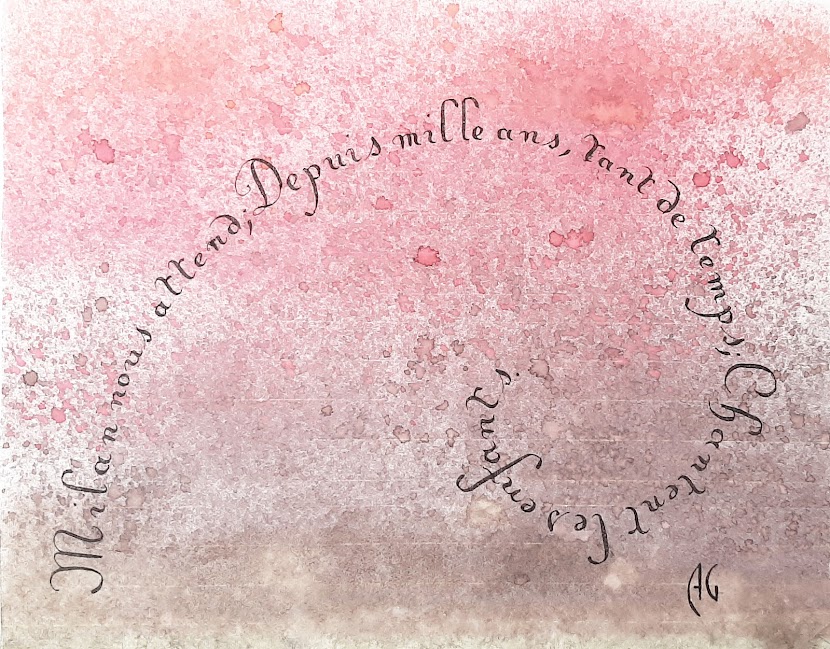 Milan nous attend; Depuis mille ans, tant de temps; Chantent les enfants;
AG